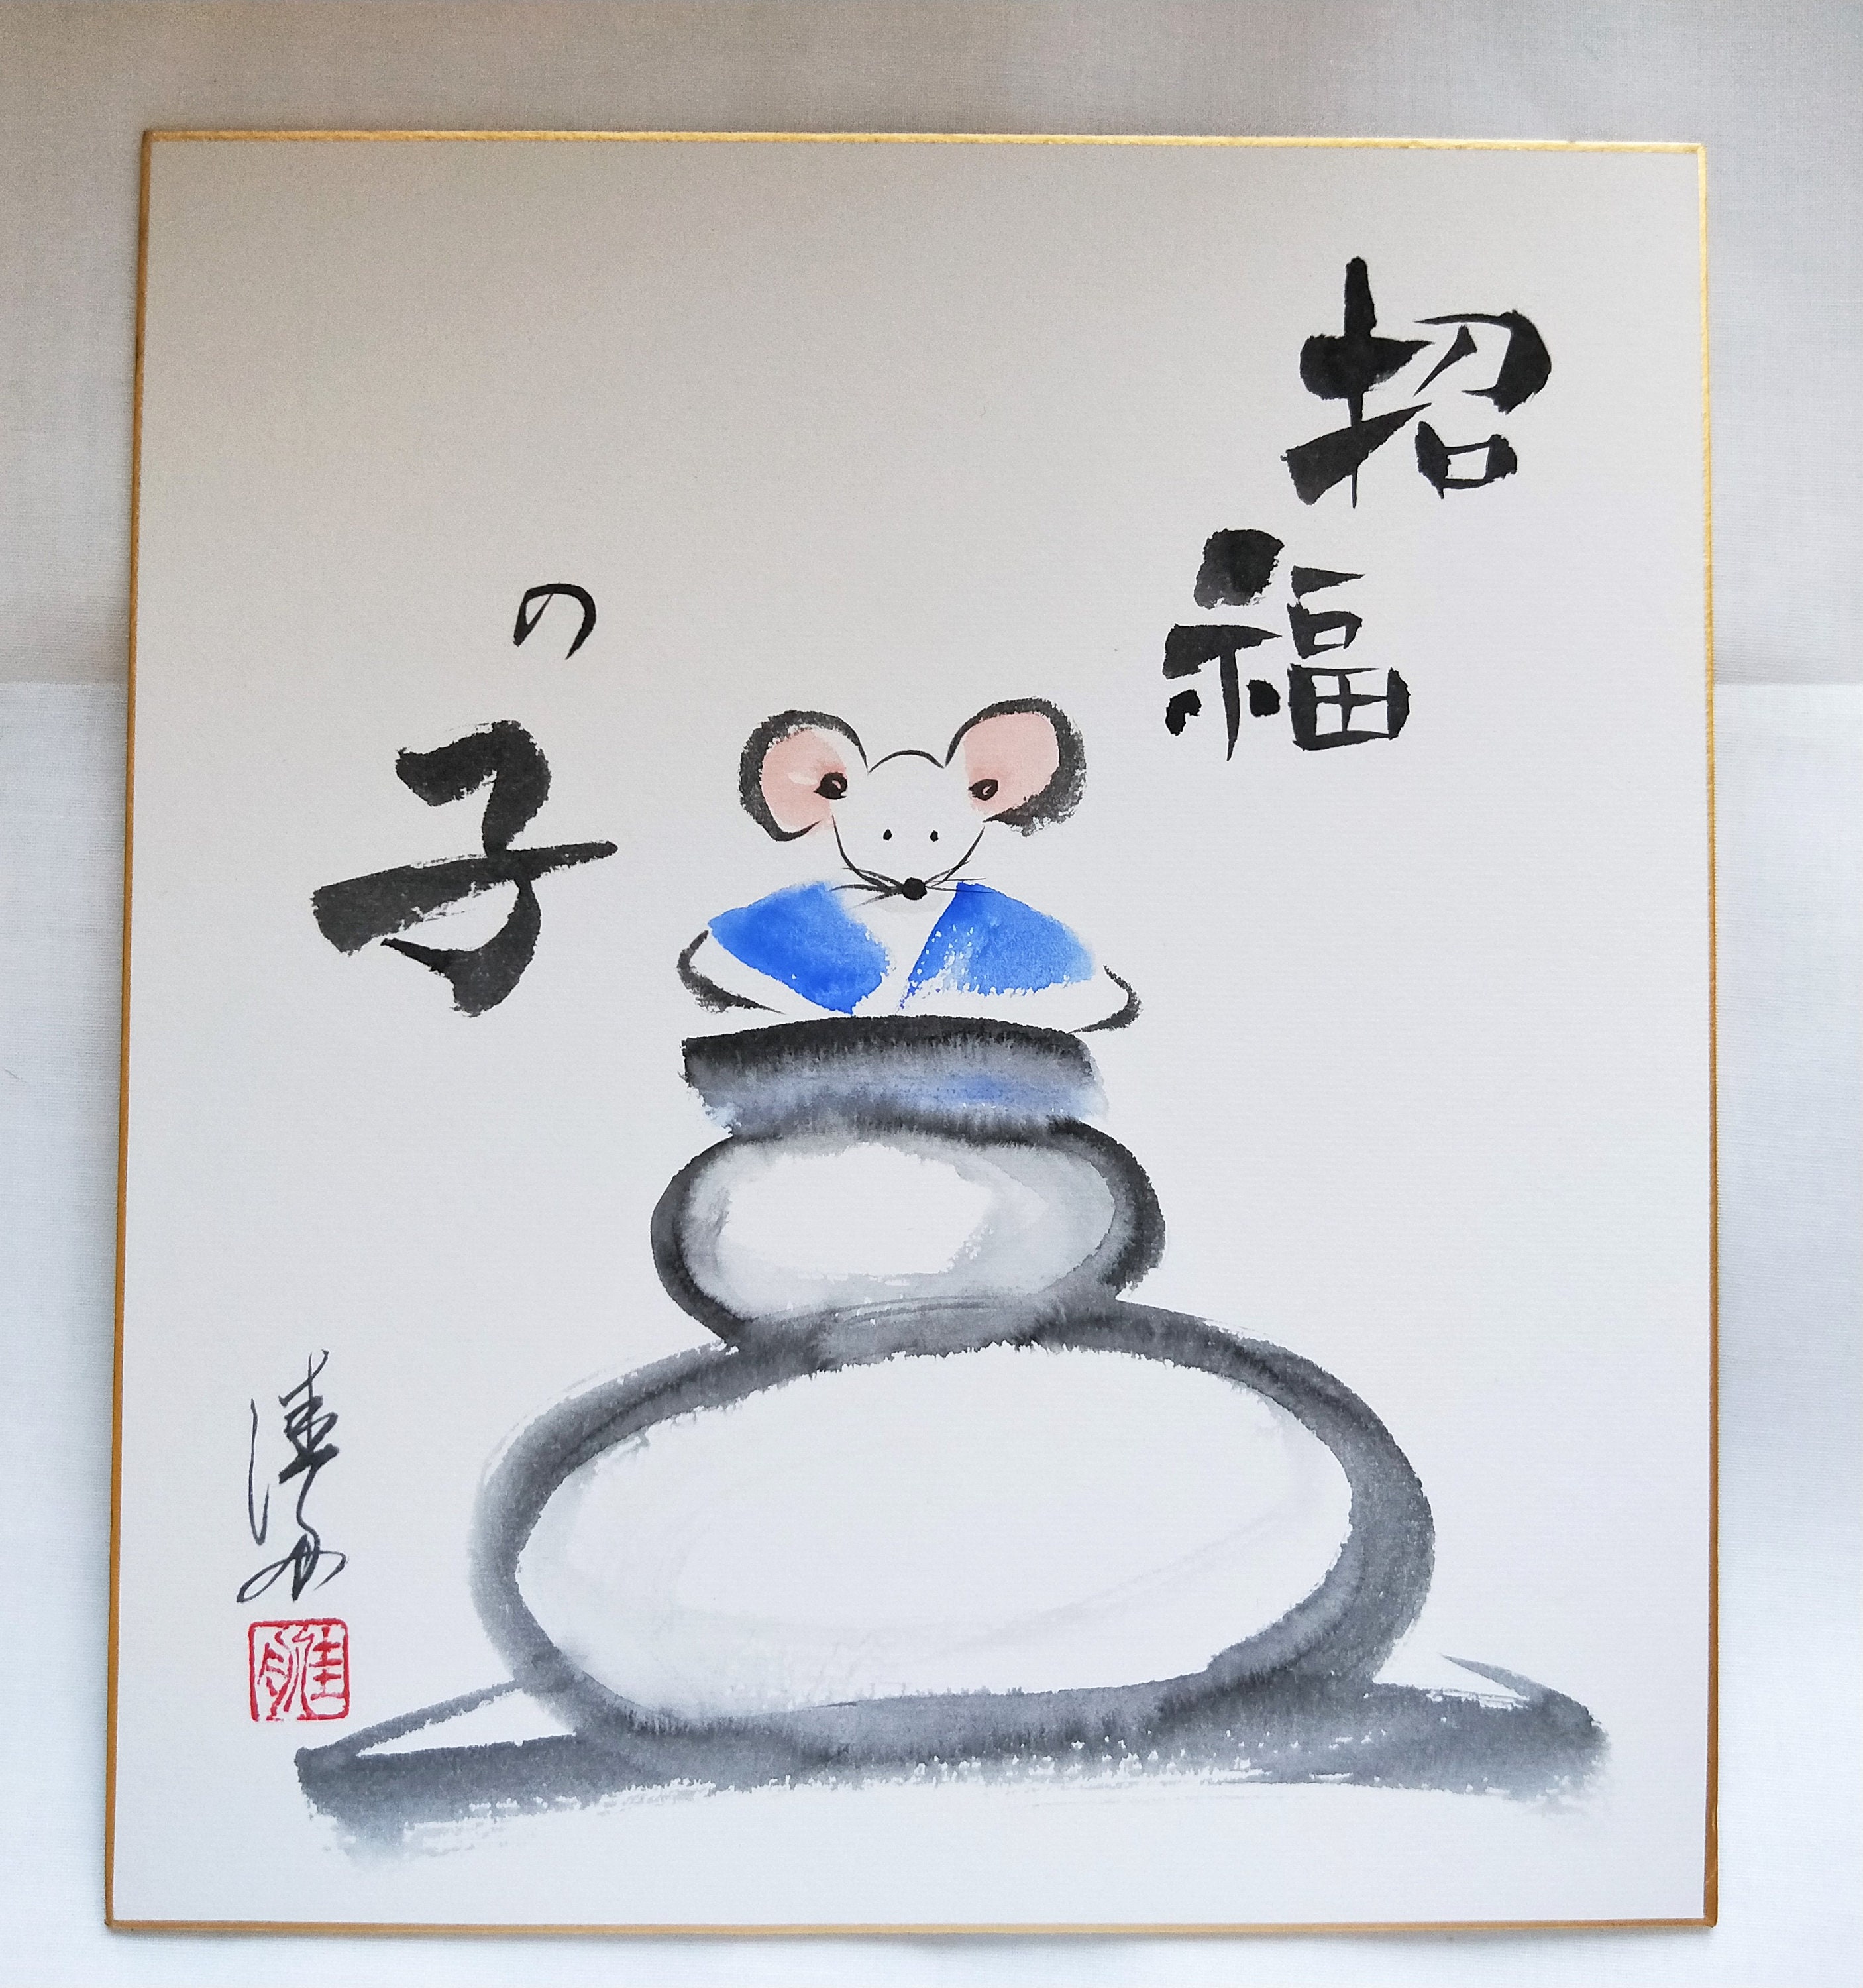 招福
の子